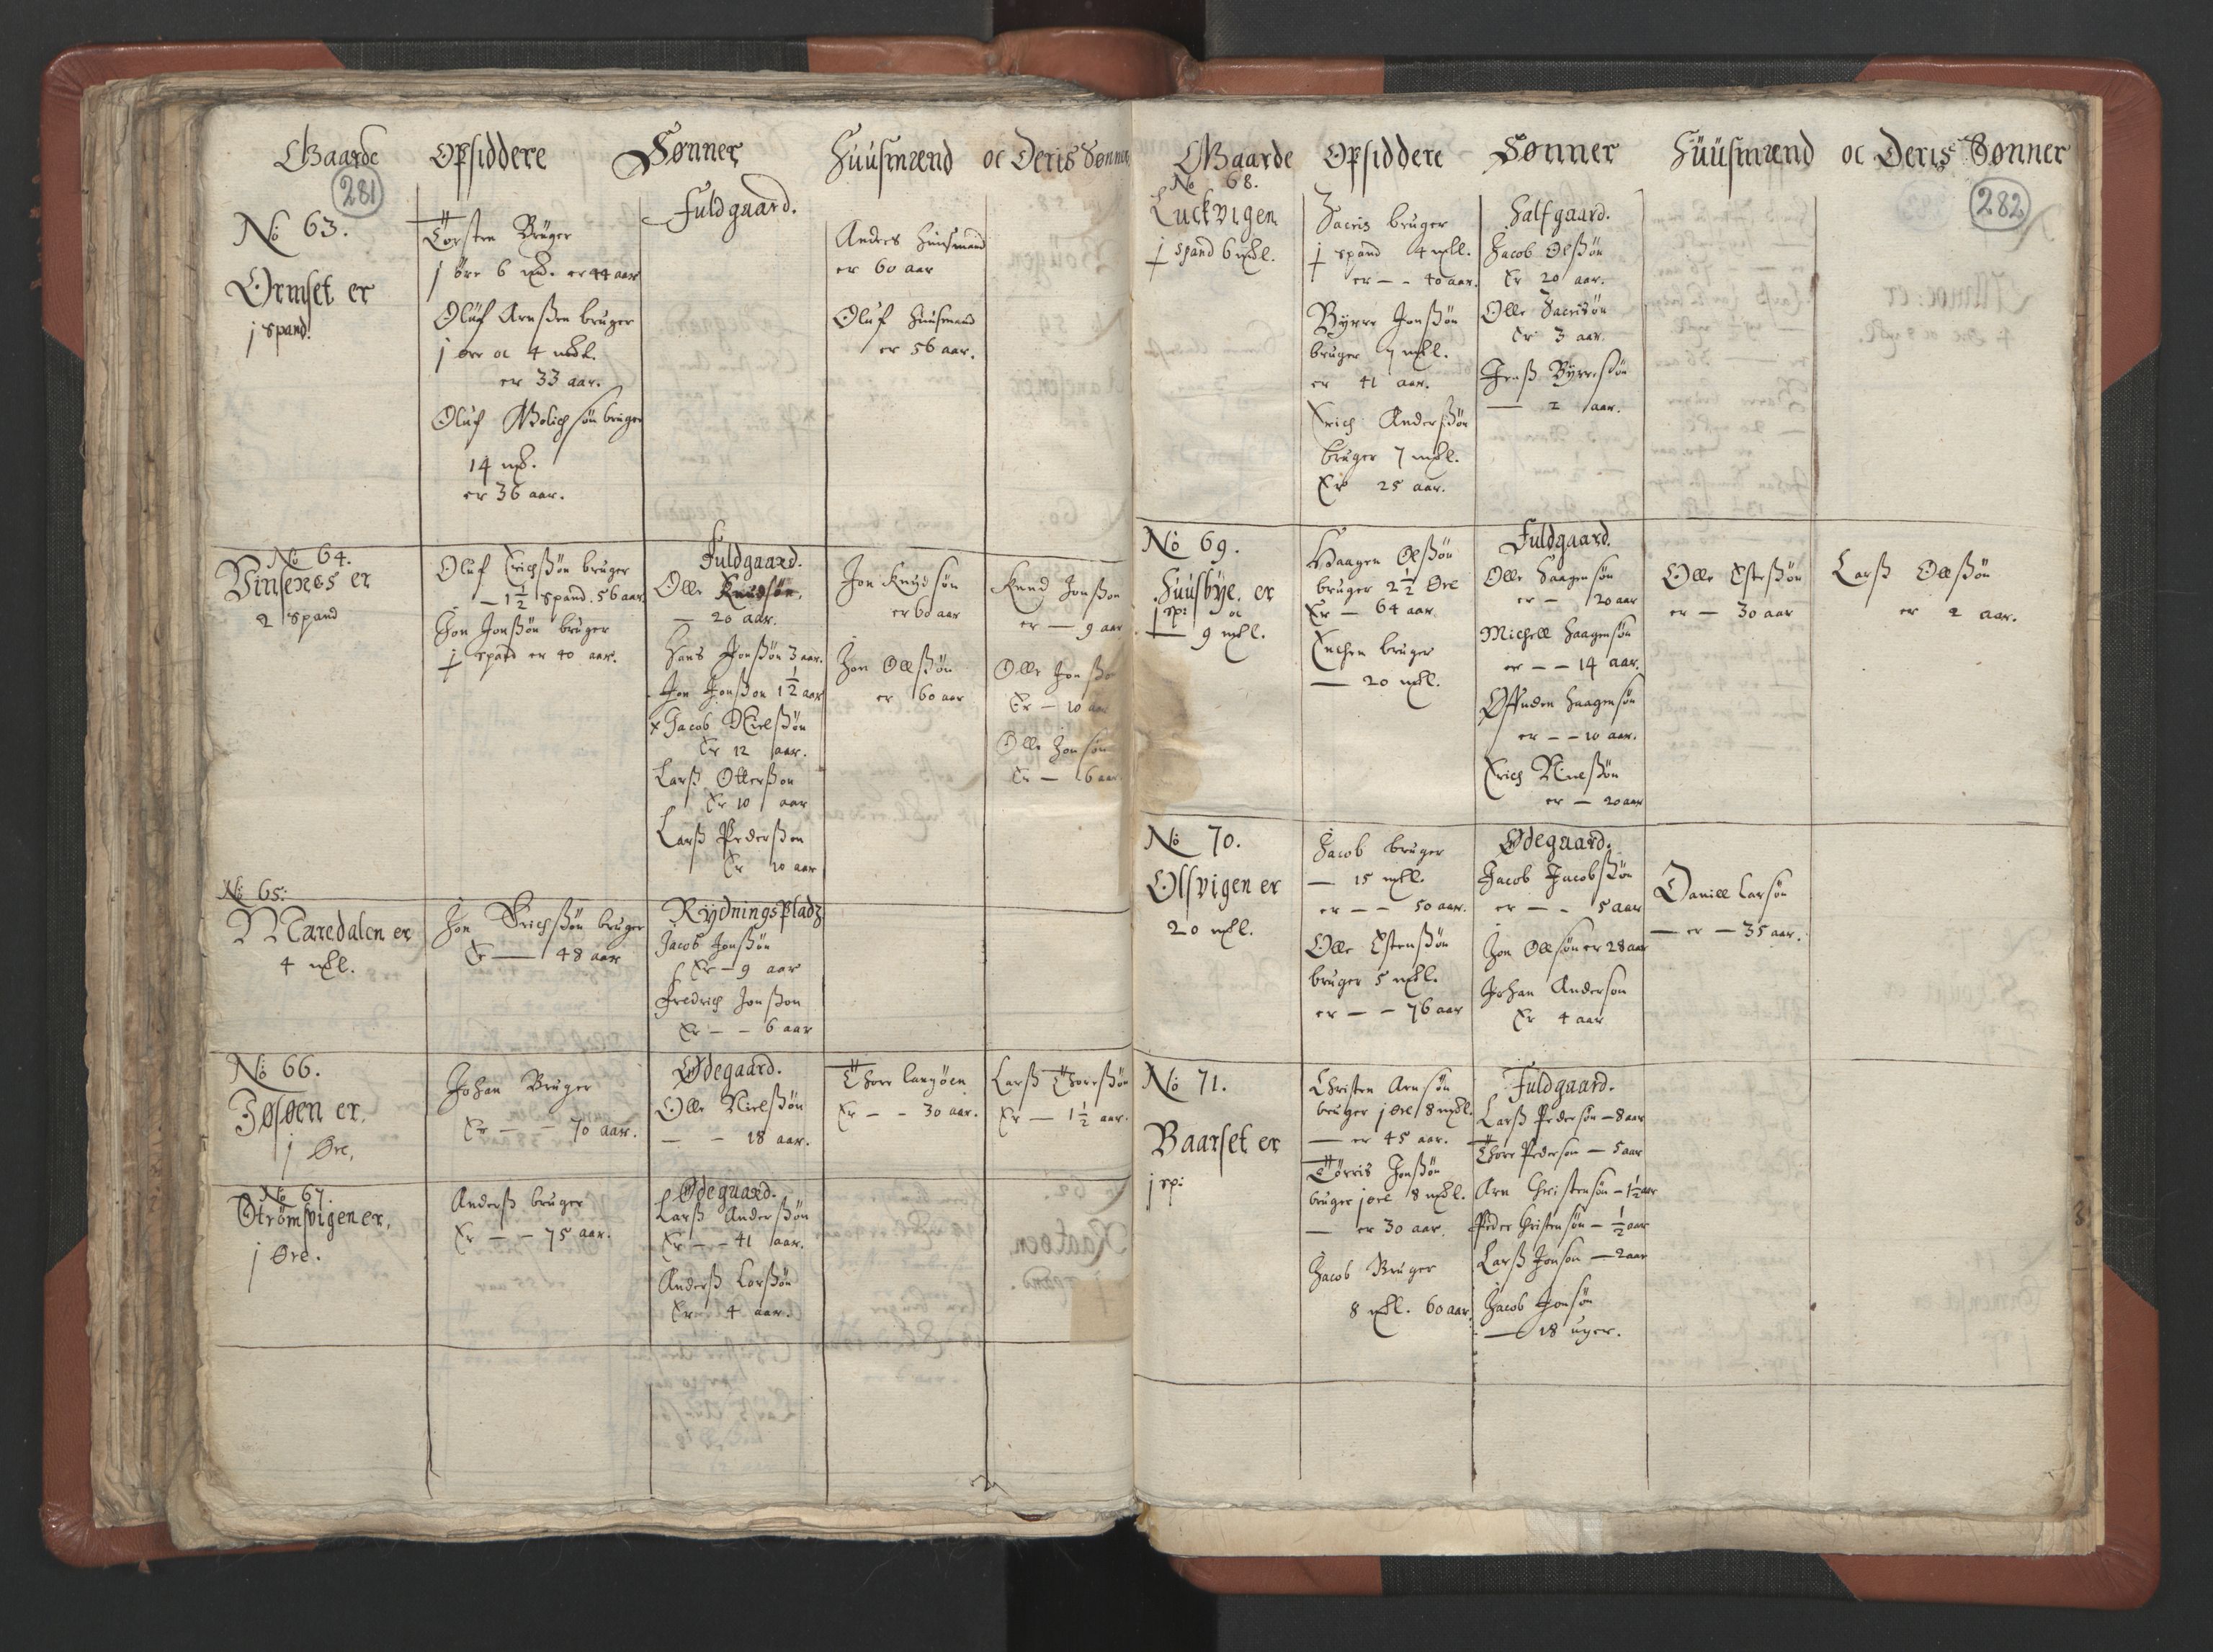 Gaarde Opsiddere Sønner Huusmænd oc Deris Sønner
281
Fuldgaard.
No 63.
Ormset er
j spand.
Torsten Bruger
j øre 6 mk. er 44 aar
Oluf Arnßen bruger
j øre oc 4 mkl.
er 33 aar.
Oluf bruger
14 mk.
er 36 aar.
Anders huusmand
er 60 aar
Oluf huusmand
er 56 aar.
No 64.
Vinsenes er
2 spand
Oluf Erichßøn bruger
— 1½ spand. 56 aar.
Jon Jonßøn bruger
j spand er 40 aar.
Fuldgaard.
Olle Knudsøn.
— 20 aar.
Hans Jonßøn 3 aar.
Jon Jonßon 1½ aar
x Jacob Nielßøn
Er 12 aar.
Larß Ollerßon
Er 10 aar
Larß Pederßon
Er 10 aar
Jon Knudsøn
er 60 aar
Jon Ollßøn
er 60 aar
Knud Jonßon
er — 9 aar
Olle Jonßo
Er — 10 aar
Olle Jonsøn
Er — 6 aar
No 65:
Maredalen er
4 mkl.
Jon Erichßøn bruger
Er — 48 aar
Rydningsplads
Jacob Jonßøn
Er — 9 aar
Fredrich Jonßon
Er — — 6 aar
No 66.
Josøen er.
j Øre.
Johan Bruger
Er — — 70 aar.
Ødegaard.
Olle Nielßøn
— — 18 aar.
Thore Langøen
Er — — 30 aar.
Larß Thoreßøn
Er — 1½ aar.
No 67.
Strømsvigen er.
j Øre.
Anderß bruger
Er — — 75 aar.
Ødegaard.
Larß Anderßøn
Er — — 41 aar.
Anderß Larßøn
Er 4 aar.
Gaarde Opsiddere Sønner Huusmænd oc Deris Sønner
282
No 68.
Luckvigen
j spand 6 mkl.
Sacris bruger
j spand 4 mkl.
er — — 40 aar.
Byrre Jonßøn
bruger 7 mkl.
er 41 aar.
Erich Anderßøn
bruger 7 mkl.
Er 25 aar.
Halfgaard.
Jacob Olßøn
Er 20 aar.
Olle Sacrisøn
Er 3 aar.
Jenß Byrresøn
— 2 aar.
No 69.
Huusbye. er
j sp: oc
— 9 mkl.
Haagen Olßøn
bruger 2½ Øre
Er — 64 aar.
Enchen bruger
— 20 mkl.
Fuldgaard.
Olle Haagensøn
er — 20 aar
Michell Haagensøn
er — — 14 aar.
Haagensøn
er — — 10 aar.
Erich
er — 20 aar
Olle Ølsteßøn
er — 30 aar
Larß Ollßøn
er 2 aar.
No 70.
Olsvigen er
20 mkl.
Jacob bruger
— 15 mkl.
er — — 50 aar.
Olle Estenßøn
bruger 5 mkl.
er — — 76 aar
Ødegaard.
Jacob Jacobßøn
er — — 5 aar
Jon Ollsøn er 28 aar
Johan Anderson
Er 4 aar
Daniell Larsøn
— er — 35 aar.
No 71.
Baarset er
j sp:
Christen Arnsøn
bruger j Øre 8 mkl.
— er 45 aar.
Tørris Jonßøn
bruger j øre 8 mkl.
— er 30 aar.
Jacob Bruger
8 mkl. 60 aar
Fuldgaard.
Larß Pedersøn — 8 aar
Thore Pederson — 5 aar
Arn Christensøn — 1½ aar
Peder Christensøn — ½ aar
Larß Jonsøn — 2 aar
Jacob Jonsøn
— 18 uger.